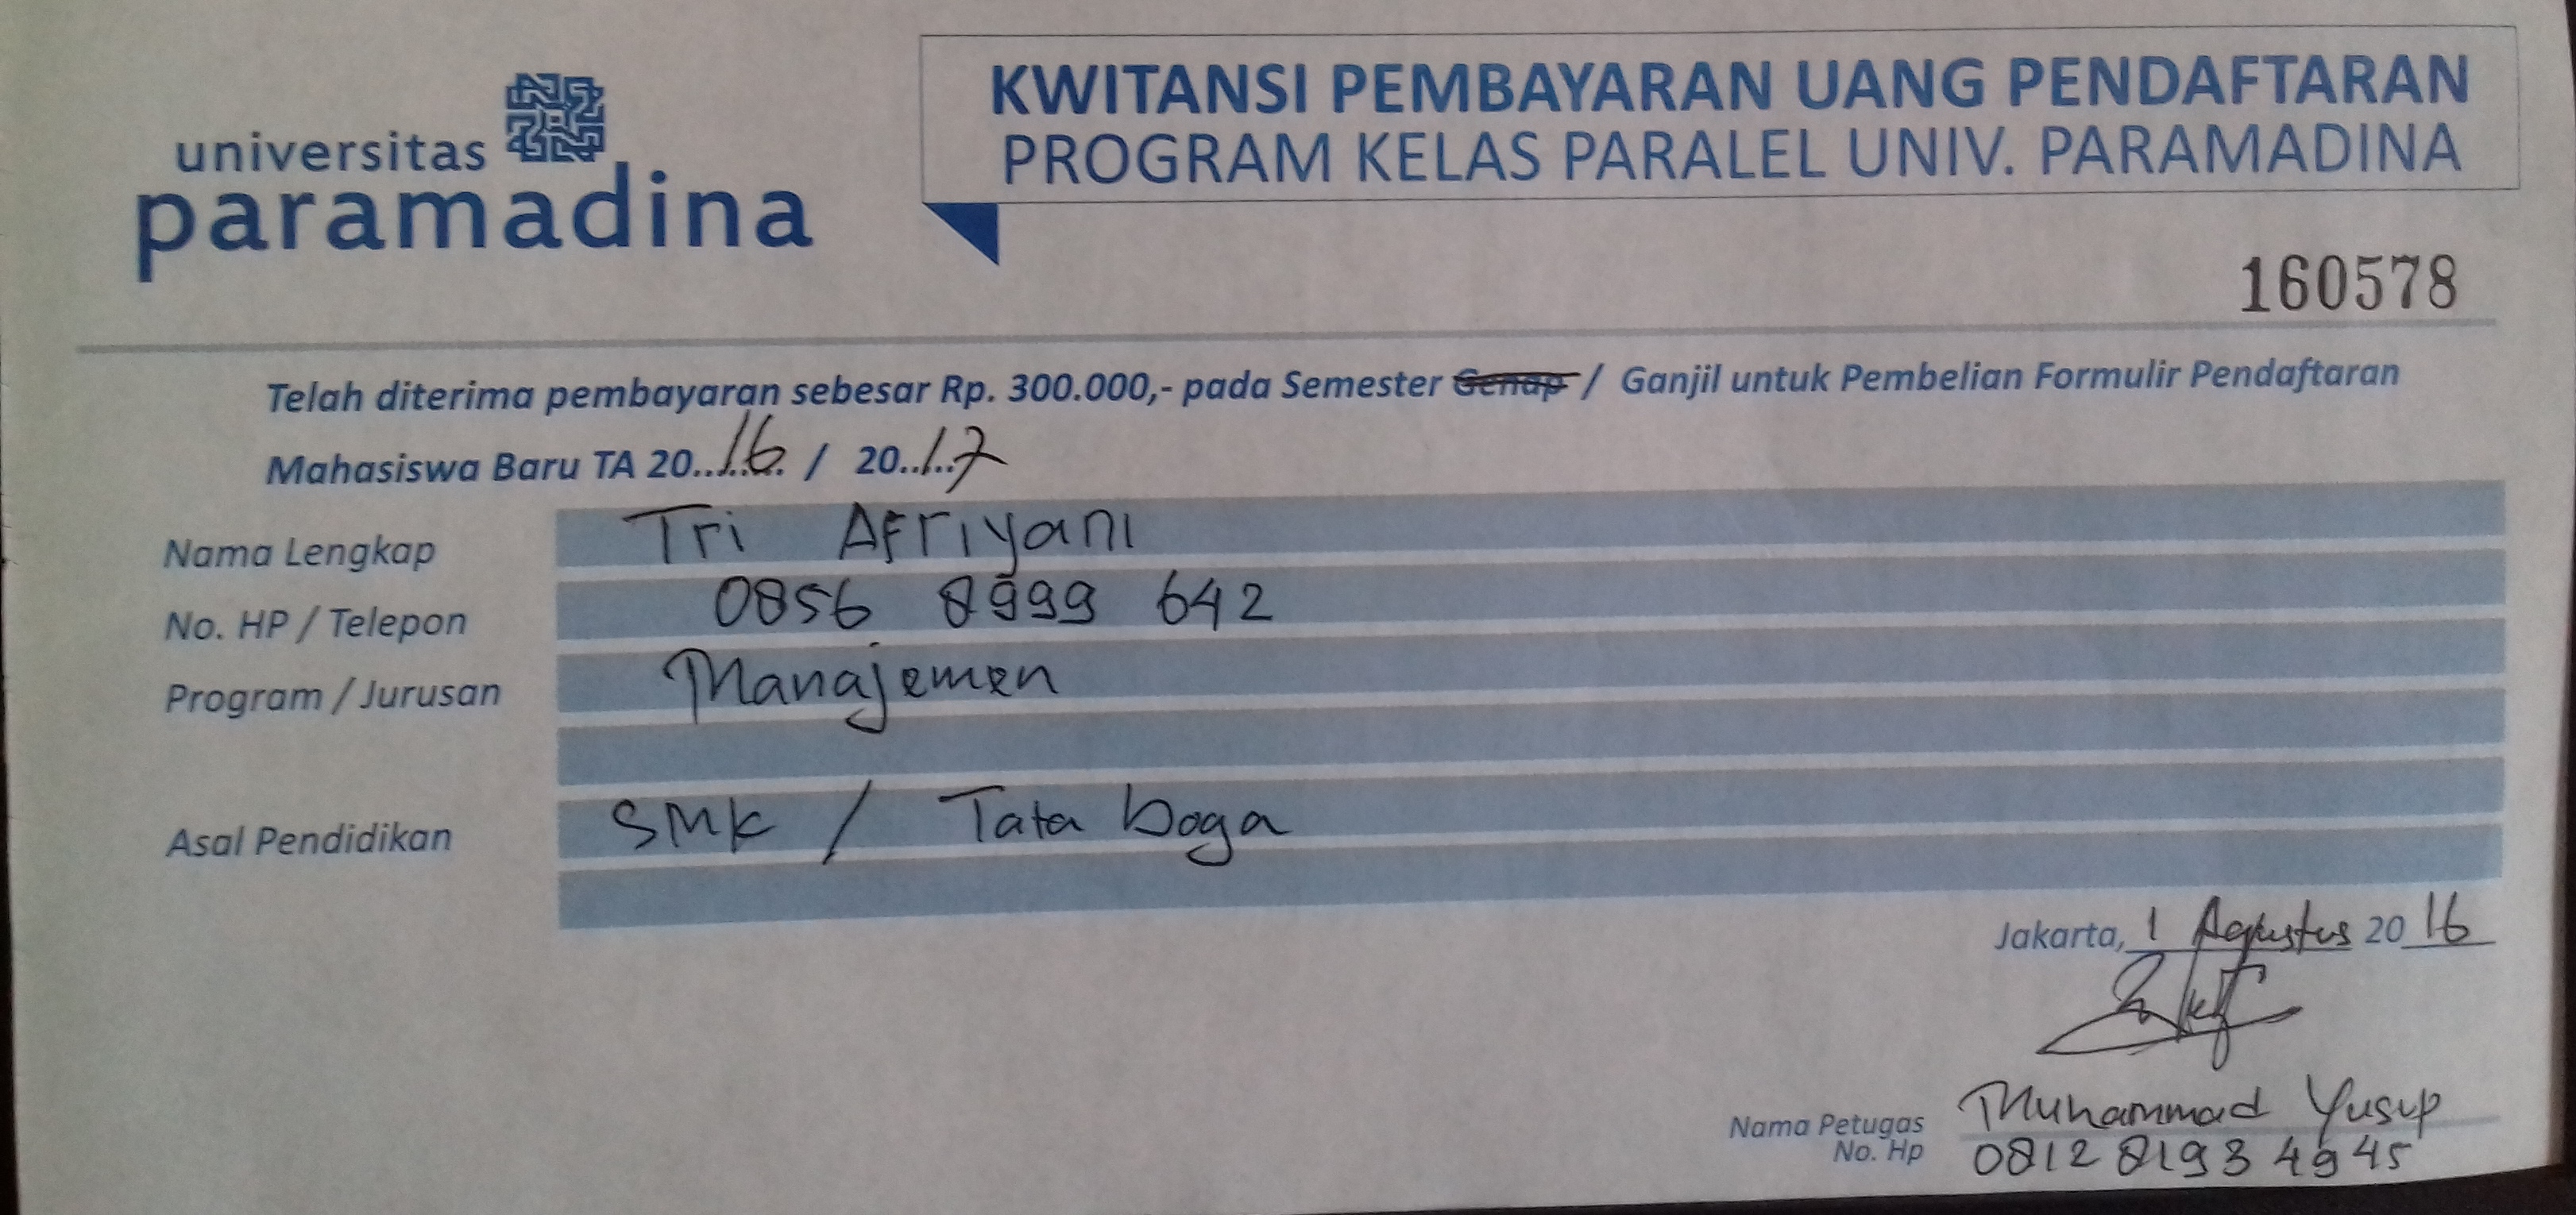 universitas
paramadina
KWITANSI PEMBAYARAN UANG PENDAFTARAN
PROGRAM KELAS PARALEL UNIV. PARAMADINA
160578
Telah diterima pembayaran sebesar Rp. 300.000,- pada Semester Genap / Ganjil untuk Pembelian Formulir Pendaftaran
Mahasiswa Baru TA 20..16.. / 20..17
Nama Lengkap Tri Afriyani
No. HP / Telepon 0856 8999 642
Program / Jurusan Manajemen
Asal Pendidikan SMK / Tata boga
Jakarta, 1 Agustus 2016
Nama Petugas Muhammad Yusup
No. Hp 0812 8193 4945